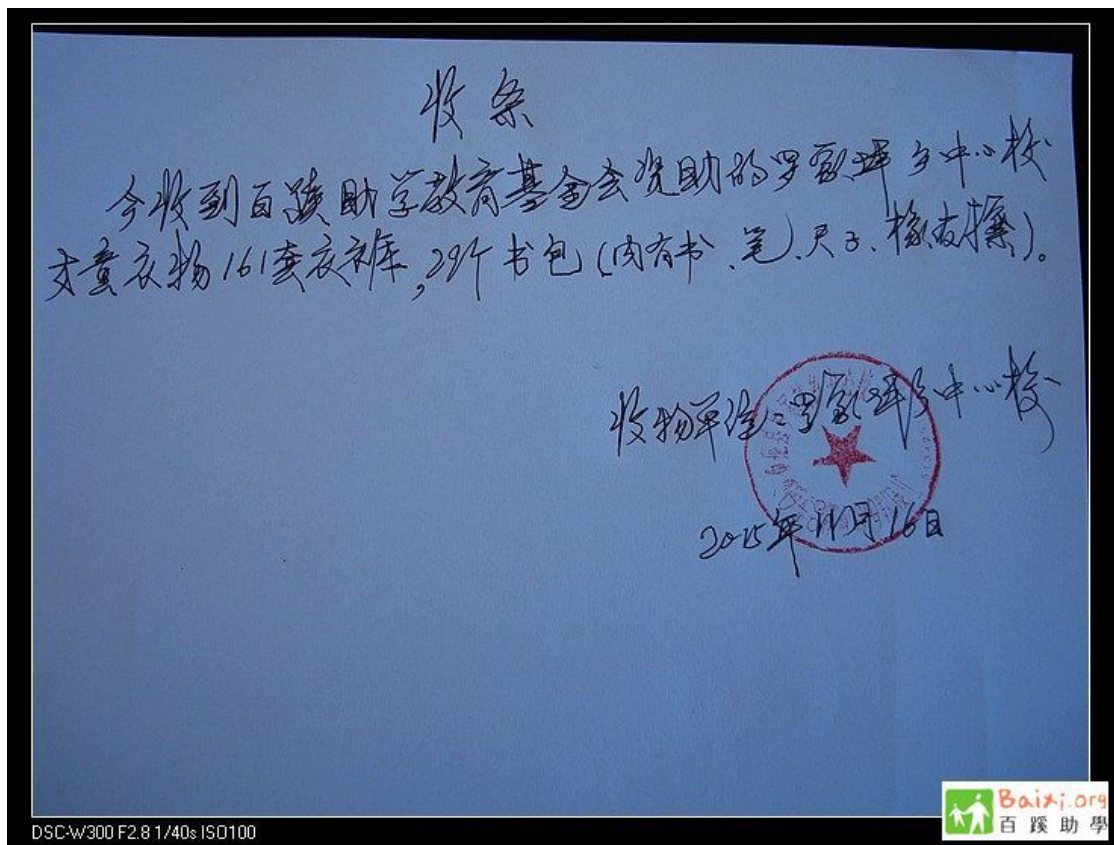 收条
今收到百蹊助学教育基金会资助的罗家坪乡中心校
才童衣物161套衣裤,29个书包(内有书、笔、尺子、橡皮擦)。
收物单位:罗家坪乡中心校
2015年11月16日
DSC-W300 F2.8 1/40s ISO100
Baixi.org
百蹊助學